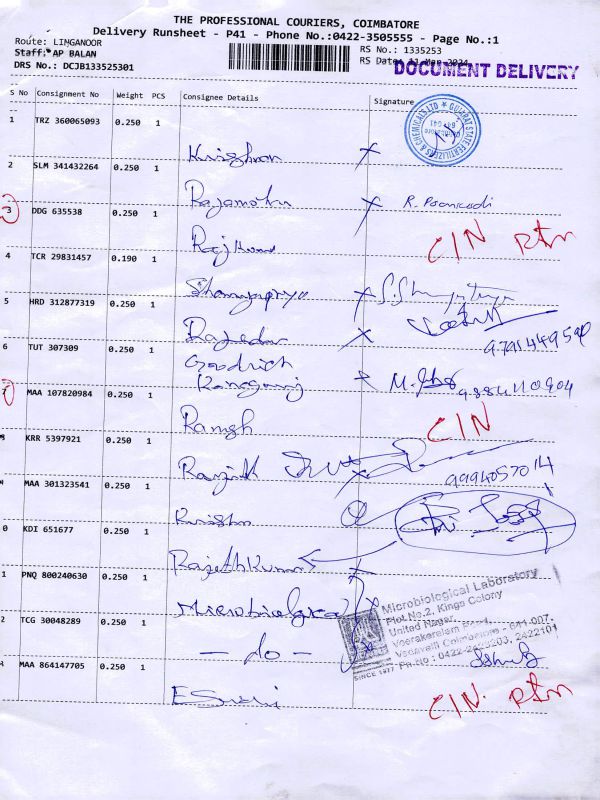 THE PROFESSIONAL COURIERS, COIMBATORE
Delivery Runsheet - P41 - Phone No.:0422-3505555 - Page No.:1
Route: LINGANOOR
RS No.: 1335253
Staff: AP BALAN
RS Date: 11 Mar 2024
DRS No.: DCJB133525301
DOCUMENT DELIVERY
S No Consignment No Weight PCS Consignee Details Signature
1 TRZ 360065093 0.250 1
Krishnan
GUJARAT STATE FERTILIZERS & CHEMICALS LTD
2 SLM 341432264 0.250 1
Rajamani R. Poonkodi
3 DDG 635538 0.250 1
Rajkumar C/N Rtn
4 TCR 29831457 0.190 1
5 HRD 312877319 0.250 1
9791449590
6 TUT 307309 0.250 1
Goodrich
9884110904
7 MAA 107820984 0.250 1
Ramesh C/N
8 KRR 5397921 0.250 1
Ranjith
9994057014
MAA 301323541 0.250 1
Krishn
0 KDI 651677 0.250 1
Rajeth Kumar
1 PNQ 800240630 0.250 1
Microbiological
Microbiological Laboratory
Plot No.2, Kings Colony
United Nagar,
Veerakeralam Road,
Vadavalli Coimbatore - 641 007.
SINCE 1977
2 TCG 30048289 0.250 1
- do -
MAA 864147705 0.250 1
ESwari C/N. Rtn